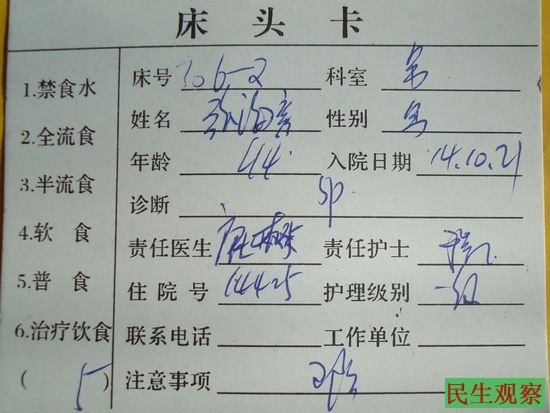 床头卡
1.禁食水
2.全流食
3.半流食
4.软 食
5.普 食
6.治疗饮食
( 5 )
床号 306-2 科室
姓名 性别
年龄 44 入院日期 14.10.21
诊断 SP
责任医生 责任护士
住院号 14425 护理级别 一级
联系电话 工作单位
注意事项
民生观察